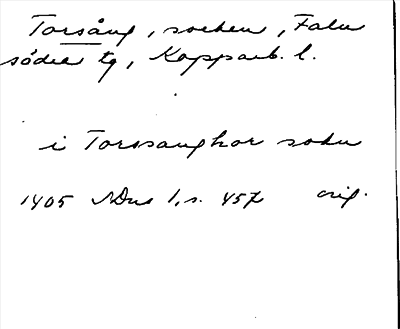 Torsång, socken, Falu
södra tg, Kopparb. l.
i Torssanghor sokn
1405 SDns 1, s. 457 orig.